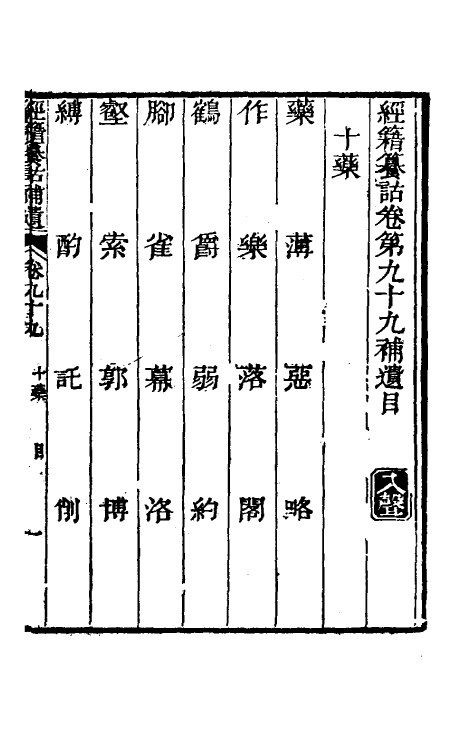 經籍籑詁卷第九十九補遺目
入聲
十藥
藥 薄 惡 略
作 樂 落 閣
鶴 爵 弱 約
腳 雀 幕 洛
壑 索 郭 博
縛 酌 託 削
經籍籑詁補遺 卷九十九 十藥 目 一